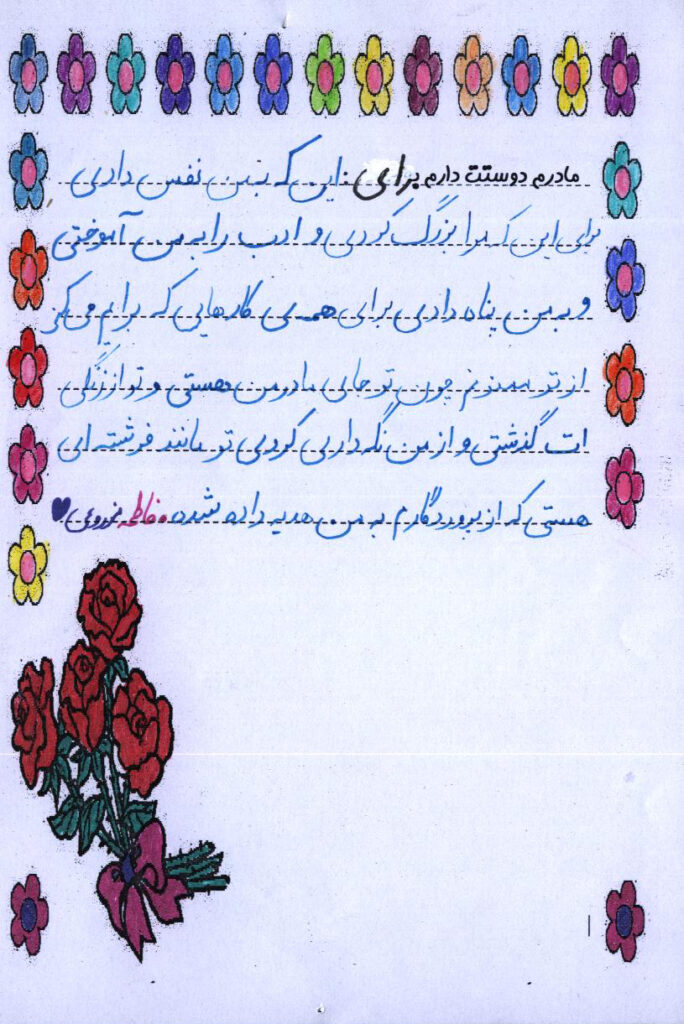 مادرم دوستت دارم برای: این که به من نفس دادی
برای این که مرا بزرگ کردی و ادب را به من آموختی
و به من پناه دادی برای همه ی کارهایی که برایم می کنی
از تو ممنونم چون تو جای مادر من هستی و تو از زندگی
ات گذشتی و از من نگه داری کردی تو مانند فرشته ای
هستی که از پروردگارم به من هدیه داده شده. فاطمه